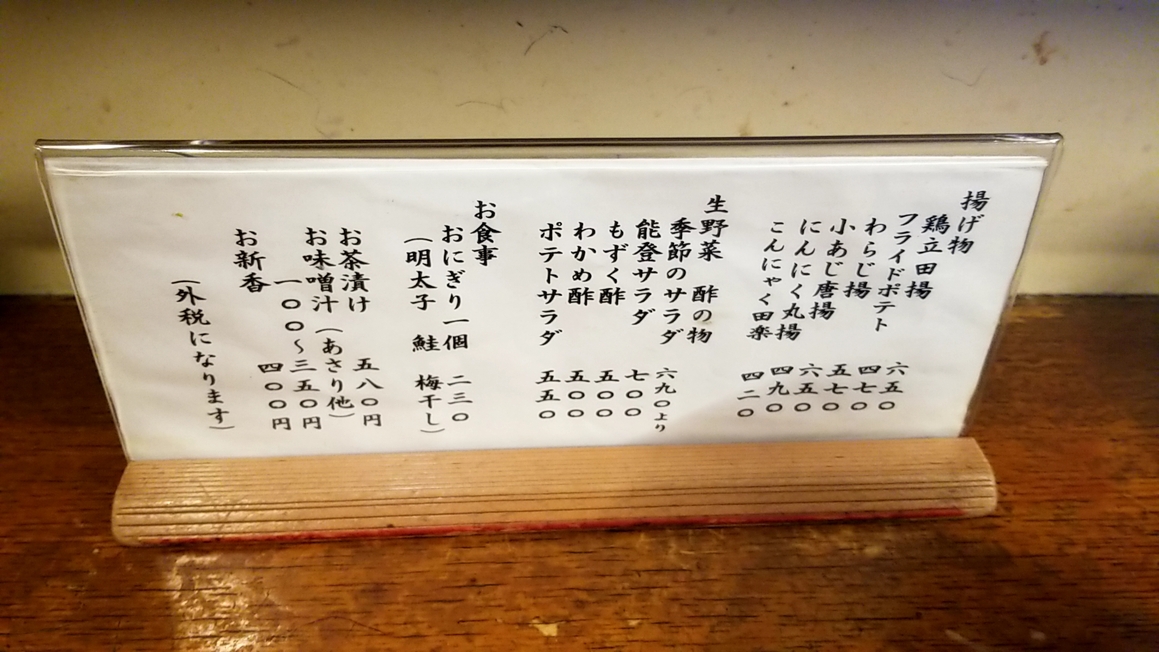 揚げ物
鶏立田揚 六五〇
フライドポテト 四七〇
わらじ揚 五七〇
小あじ唐揚 六五〇
にんにく丸揚 四九〇
こんにゃく田楽 四二〇
生野菜 酢の物
季節のサラダ 六九〇より
能登サラダ 七〇〇
もずく酢 五〇〇
わかめ酢 五〇〇
ポテトサラダ 五五〇
お食事
おにぎり一個 二三〇
（明太子 鮭 梅干し）
お茶漬け 五八〇円
お味噌汁（あさり他）
一〇〇～三五〇円
お新香 四〇〇円
（外税になります）